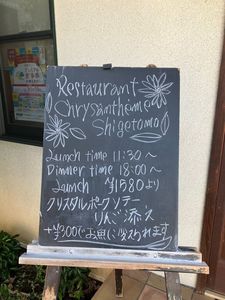 Restaurant
Chrysanthème
Shigetomo
Lunch time 11:30～
Dinner time 18:00～
Lunch ¥1580より
クリスタルポークソテー
りんご添え
+¥300でお魚に変えられます